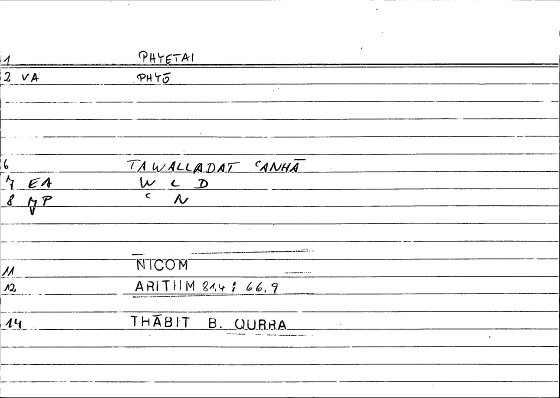 1 PHYETAI
2 VA PHYŌ
6 TAWALLADAT ʿANHĀ
7 EA W L D
8 MP ʿ N
11 NICOM
12 ARITHM 81.4 : 66.9
14 THĀBIT B. QURRA